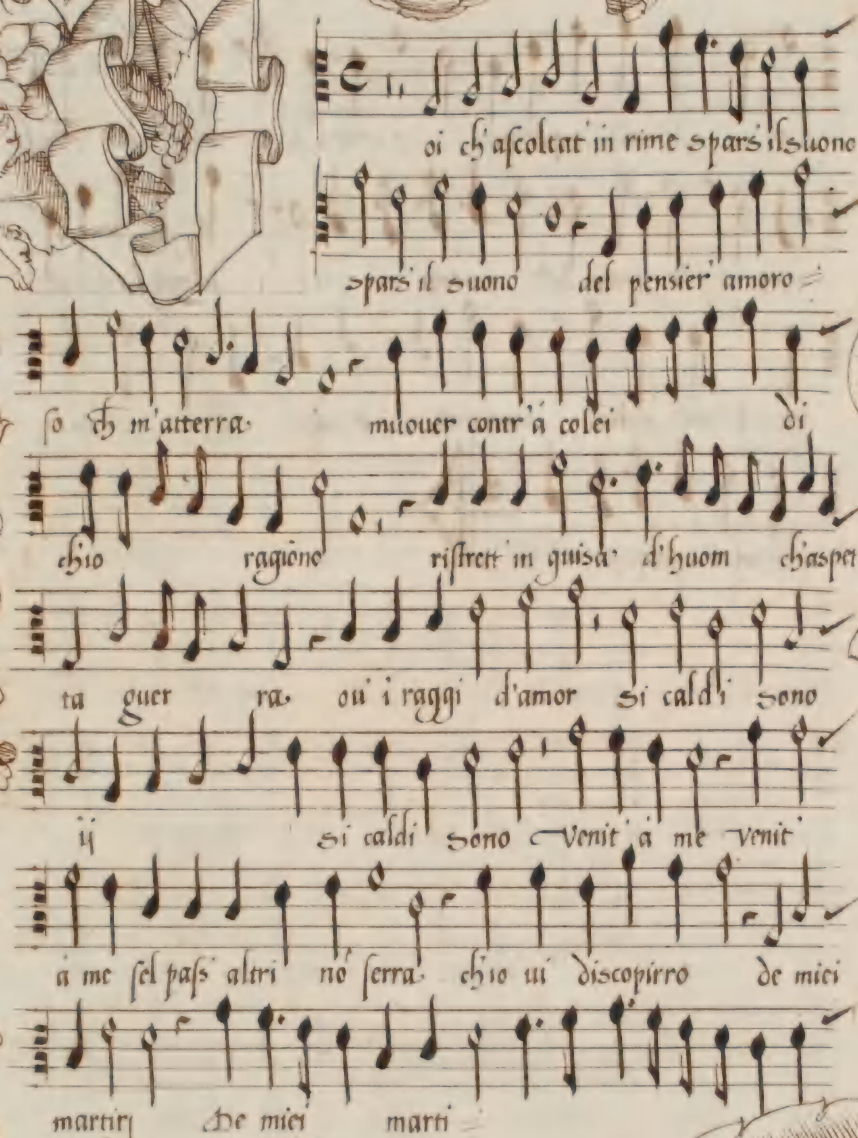 oi ch'ascoltat' in rime spars' il suono
spars' il suono del pensier' amoro=
so ch m'atterra muover contr'à colei di
ch'io ragiono ristrett' in guisa d'huom ch'aspet
ta guer ra ov' i raggi d'amor si cald' i sono
ij si caldi sono venit' à me venit'
à me sel pass' altri nō serra ch'io vi discopirro de miei
martirj De miei marti=